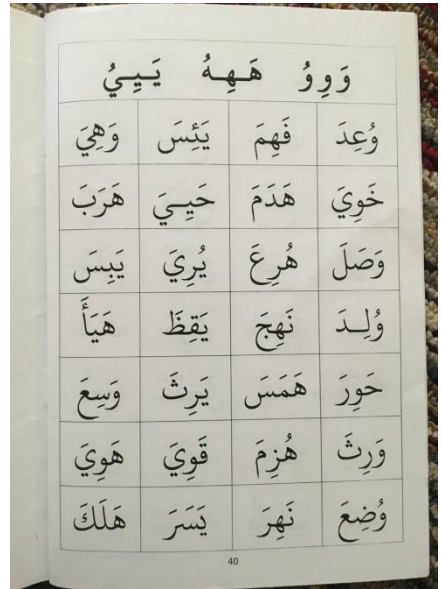 وَوِوُ هَـهِـهُ يَـيِـيُ
وُعِدَ فَهِمَ يَئِسَ وَهِيَ
خَوِيَ هَدَمَ حَيِـيَ هَرَبَ
وَصَلَ هُرِعَ يُرِيَ يَبِسَ
وُلِـدَ نَهِجَ يَقِظَ هَيَأَ
حَوِرَ هَمَسَ يَرِثَ وَسِعَ
وَرِثَ هُزِمَ قَوِيَ هَوِيَ
وُضِعَ نَهِرَ يَسَرَ هَلَكَ
40